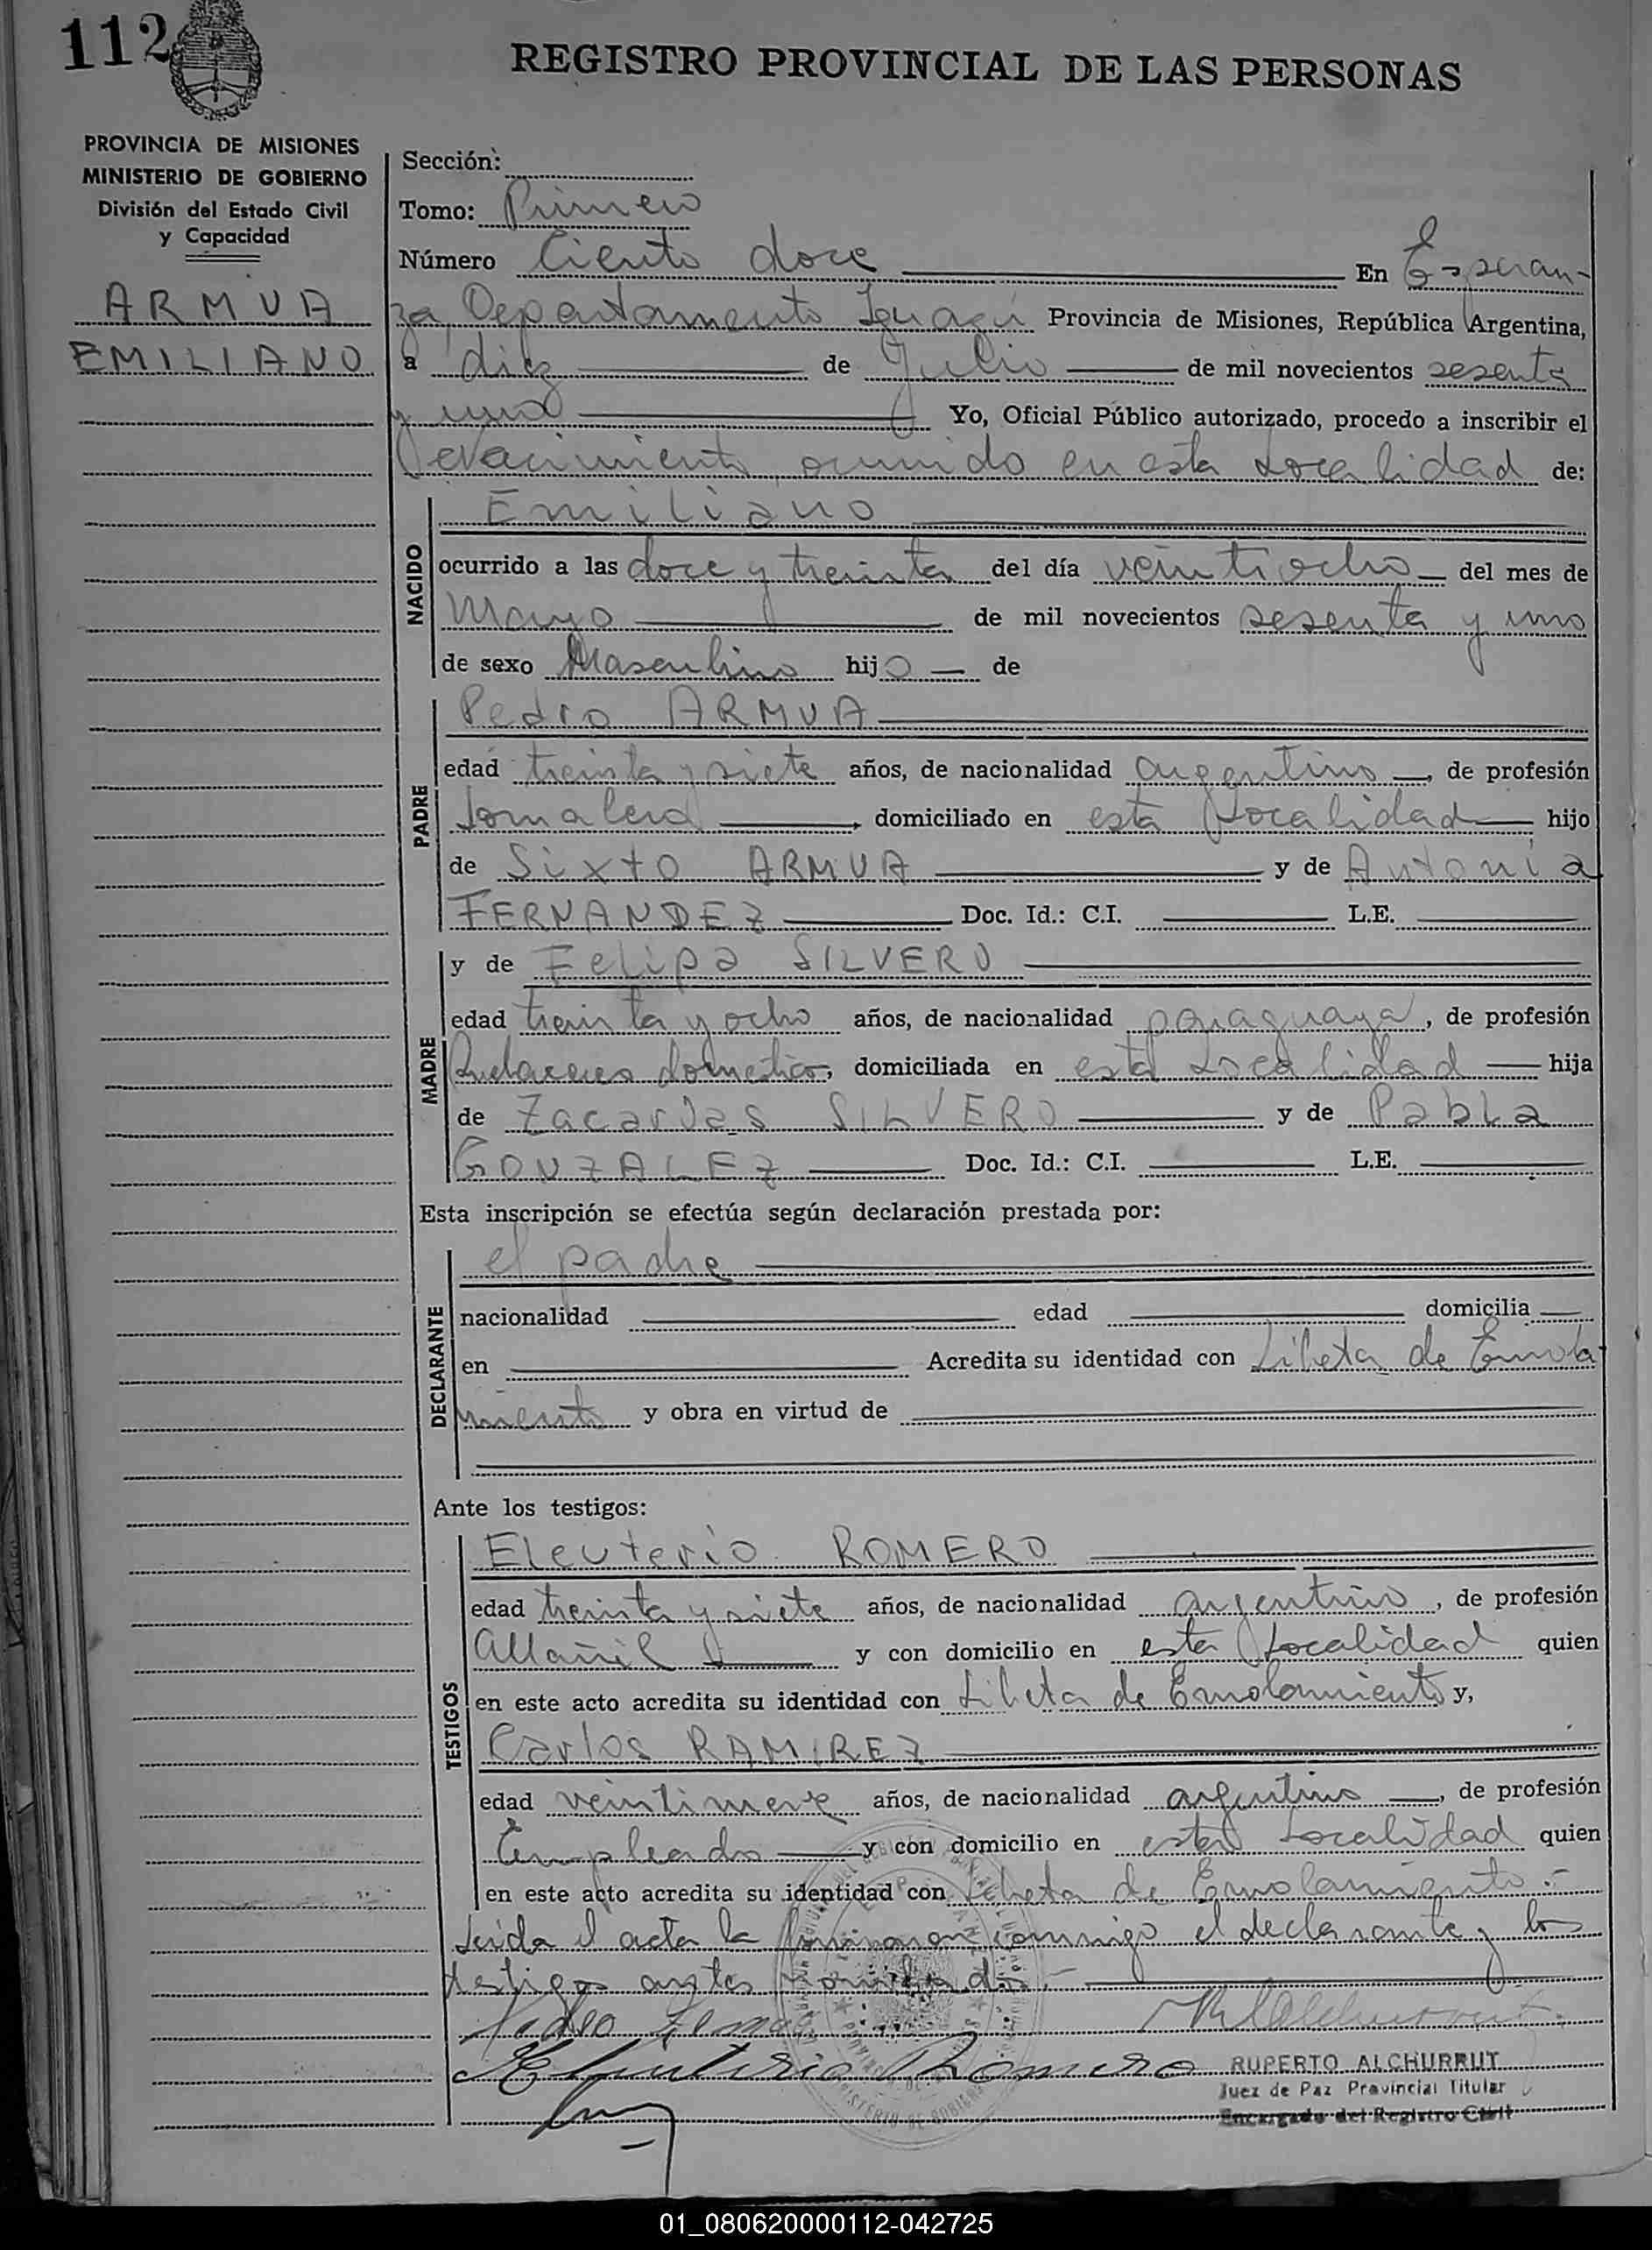 112
REGISTRO PROVINCIAL DE LAS PERSONAS
PROVINCIA DE MISIONES
MINISTERIO DE GOBIERNO
División del Estado Civil
y Capacidad
ARMUA
EMILIANO
Sección:
Tomo: Primero
Número Ciento doce En Esperan-
za, Departamento Iguazú Provincia de Misiones, República Argentina,
a diez de Julio de mil novecientos sesenta
y uno Yo, Oficial Público autorizado, procedo a inscribir el
nacimiento ocurrido en esta Localidad de:
NACIDO
Emiliano
ocurrido a las doce y treinta del día veintiocho del mes de
Mayo de mil novecientos sesenta y uno
de sexo Masculino hijo de
PADRE
Pedro ARMUA
edad treinta y siete años, de nacionalidad argentino, de profesión
Jornalero, domiciliado en esta Localidad hijo
de Sixto ARMUA y de Antonia
FERNANDEZ Doc. Id.: C.I. L.E.
MADRE
y de Felipa SILVERO
edad treinta y ocho años, de nacionalidad paraguaya, de profesión
Quehaceres domestico, domiciliada en esta Localidad hija
de Zacarias SILVERO y de Pabla
GONZALEZ Doc. Id.: C.I. L.E.
Esta inscripción se efectúa según declaración prestada por:
DECLARANTE
el padre
nacionalidad edad domicilia
en Acredita su identidad con Libeta de Enrola
miento y obra en virtud de
Ante los testigos:
TESTIGOS
Eleuterio ROMERO
edad treinta y siete años, de nacionalidad argentino, de profesión
Allañil y con domicilio en esta Localidad quien
en este acto acredita su identidad con Libeta de Enrolamiento y,
Carlos RAMIREZ
edad veintinueve años, de nacionalidad argentino, de profesión
Empleado y con domicilio en esta Localidad quien
en este acto acredita su identidad con Libeta de Enrolamiento.-
Leida el acta la conmigo el declarante y los
testigos antes
Eleuterio Romero
RUPERTO ALCHURRUT
Juez de Paz Provincial Titular
Encargado del Registro Civil
01_080620000112-042725